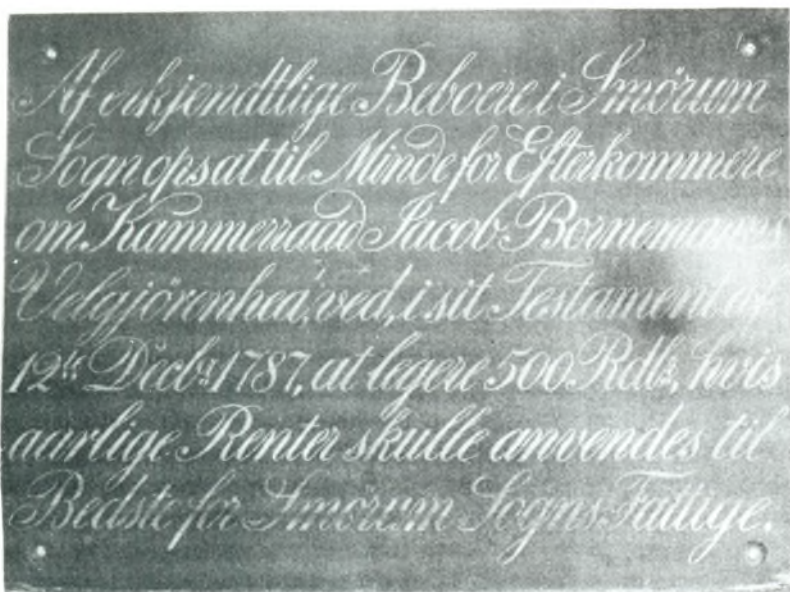 Af erkjendtlige Beboere i Smörum
Sogn opsat til Minde for Efterkommere
om Kammerraad Jacob Bornemanns
Velgjörenhed, ved, i sit Testament af
12te Decbr 1787, at legere 500 Rdlr, hvis
aarlige Renter skulle anvendes til
Bedste for Smörum Sogns Fattige.